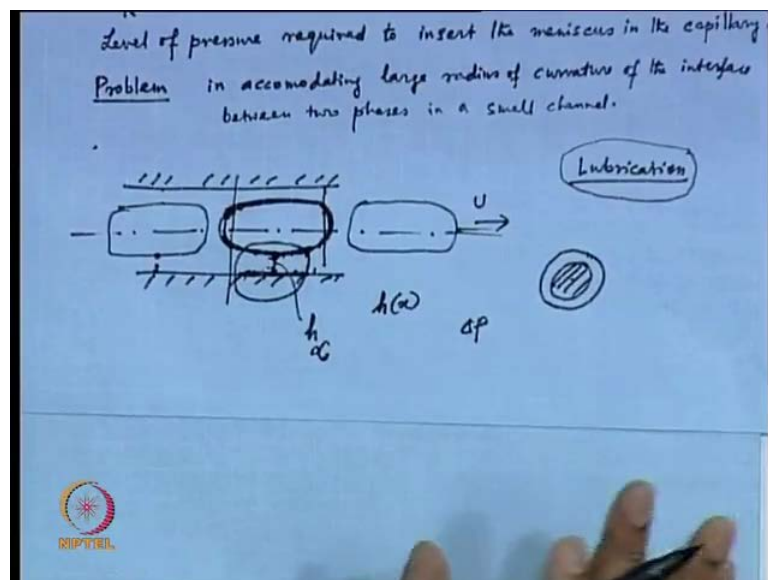 Level of pressure required to insert the meniscus in the capillary.
Problem in accomodating large radius of curvature of the interface
between two phases in a small channel.
Lubrication
U
h(x)
h
x
Δp
NPTEL